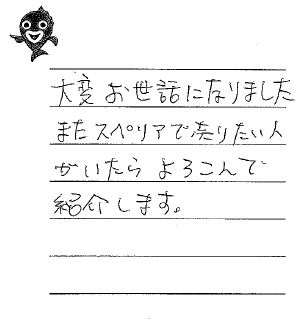 大変お世話になりました
またスペリアで売りたい人
がいたらよろこんで
紹介します。